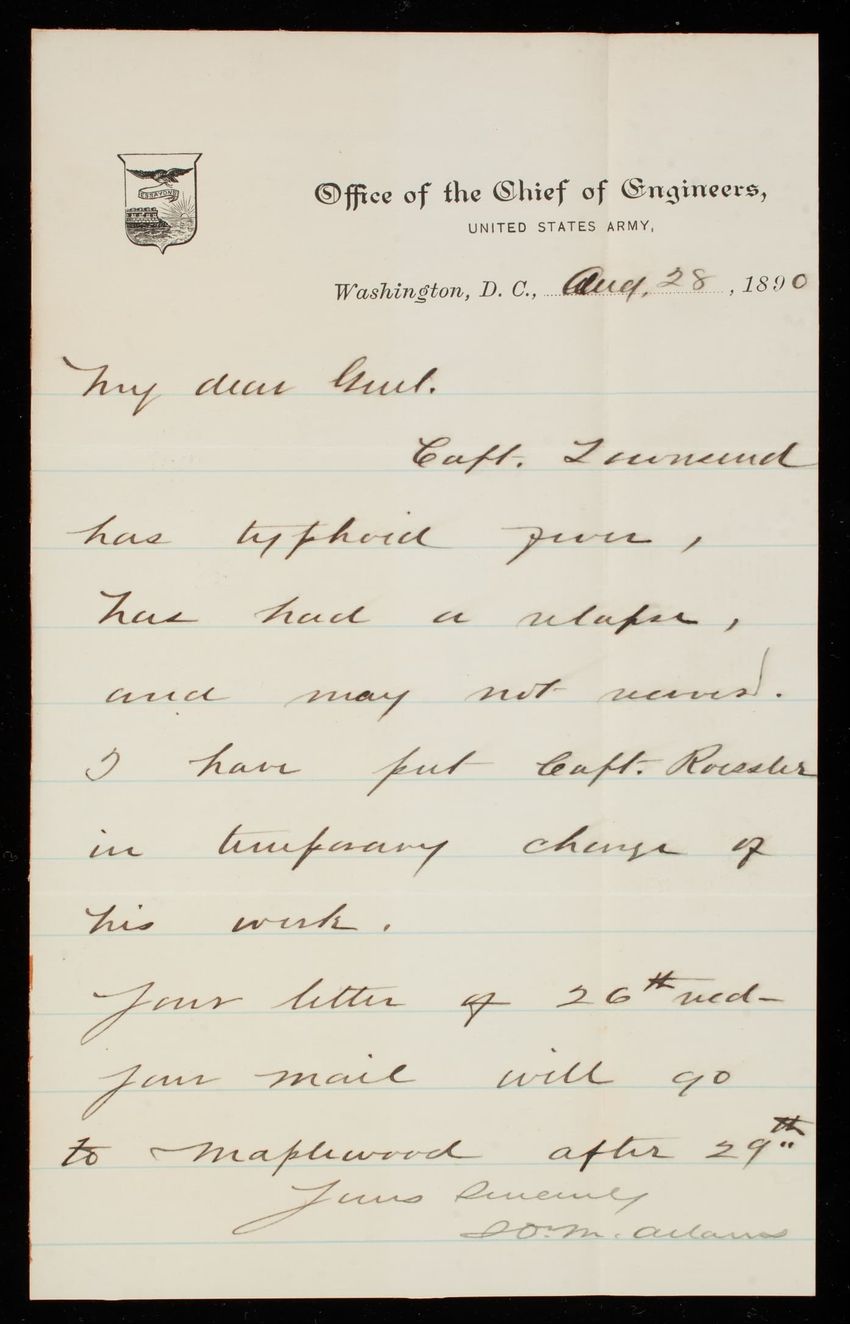 ESSAYONS
Office of the Chief of Engineers,
UNITED STATES ARMY,
Washington, D. C., Aug. 28, 1890
My dear Genl.
Capt. Townsend
has typhoid fever,
has had a relapse,
and may not recover.
I have put Capt. Roessler
in temporary charge of
his work.
Your letter of 26th recd-
Your mail will go
to Maplewood after 29th
Yours Sincerely
M. Adams